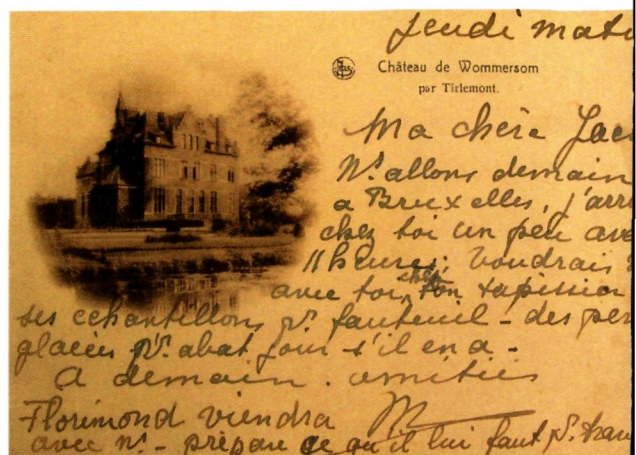 Jeudi mati
Château de Wommersom
par Tirlemont.
Ma chère Jac
Ns. allons demain
a Bruxelles, j'arr
chez toi un peu ava
11 heures; voudrais
avec toi, chez ton tapissier
ses echantillons pr. fauteuil - des per
glacées pr. abat jour s'il en a -
A demain. amitiés
Florimond viendra M
avec ns. - prépare ce qu'il lui faut pr. trav